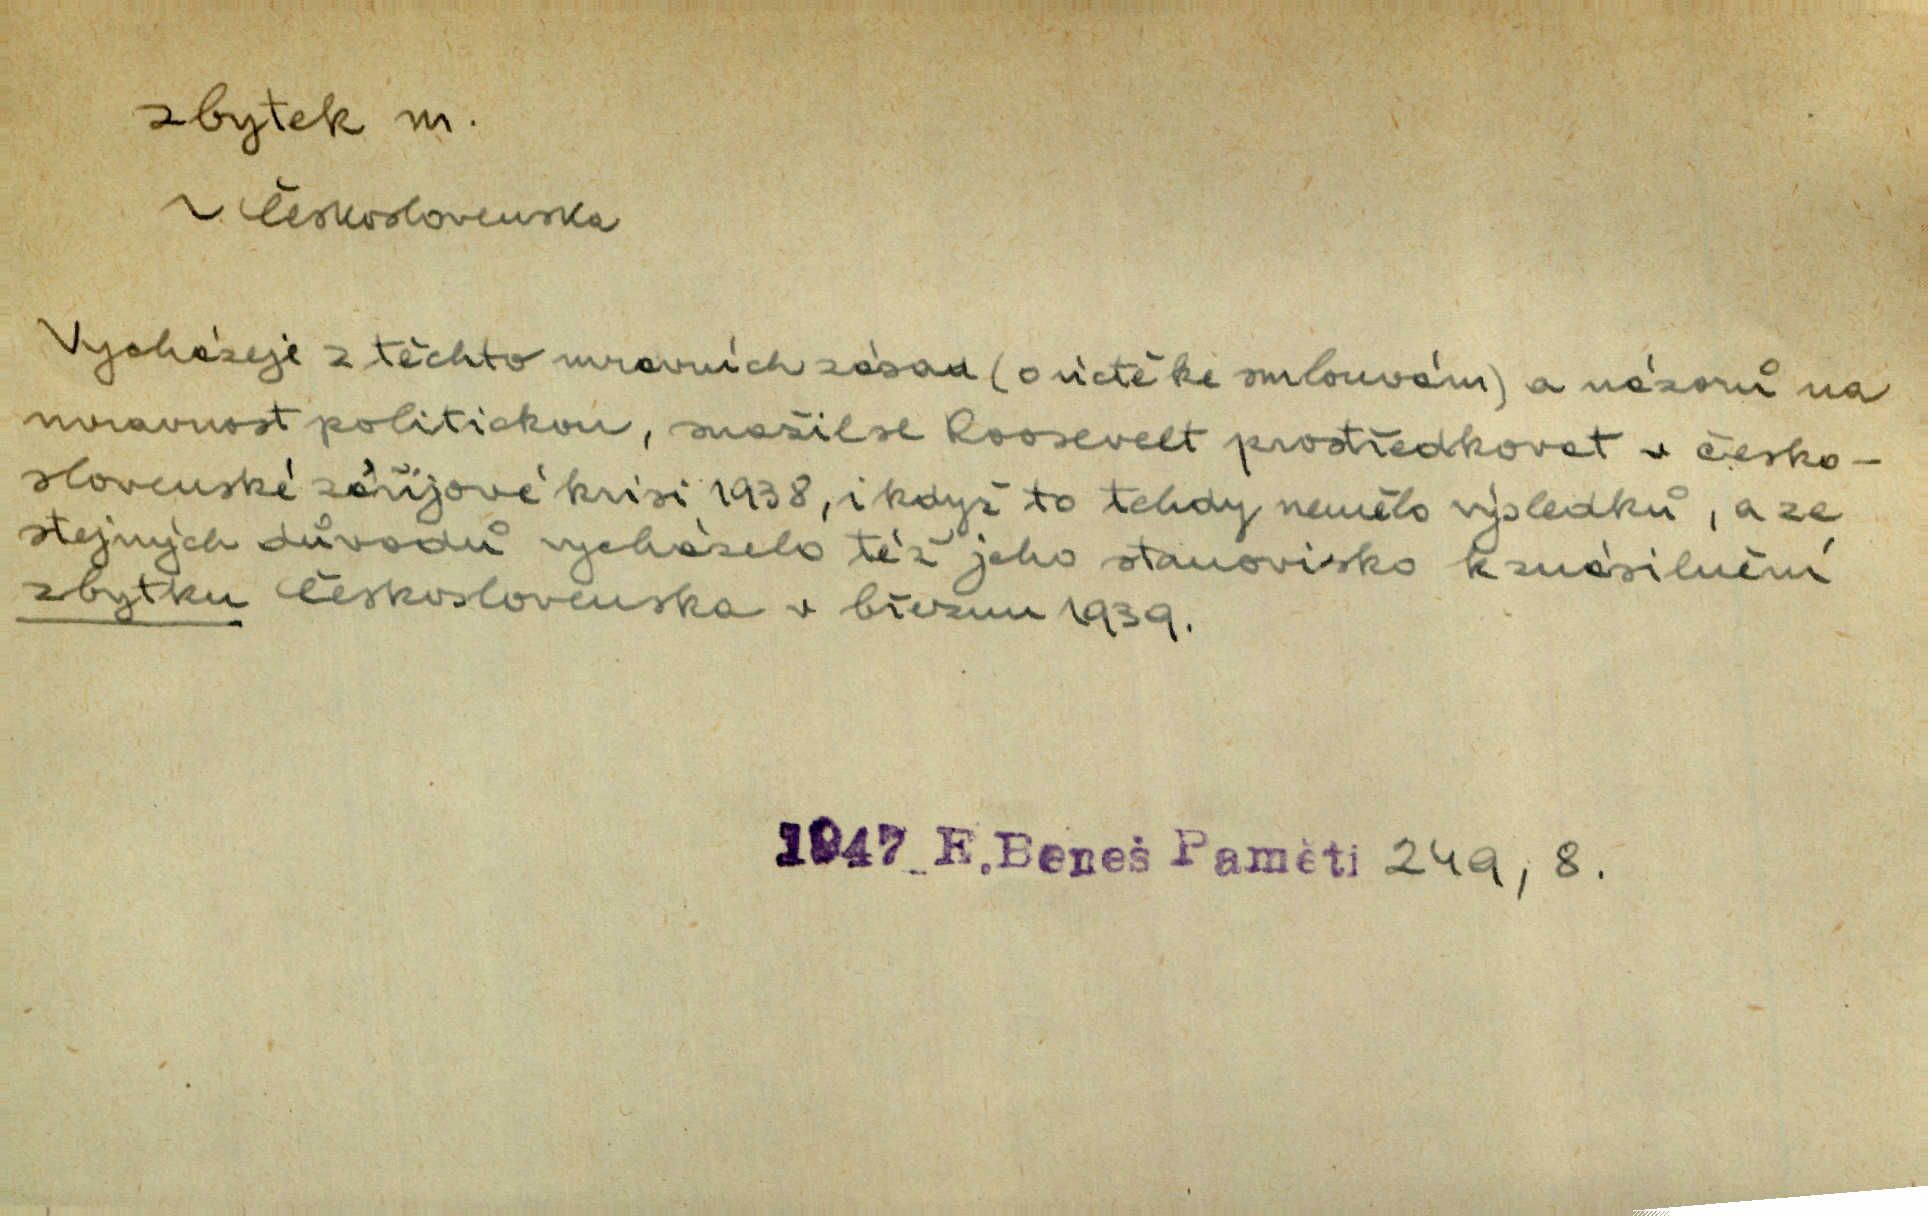 zbytek m.
~ Československa
Vycházeje z těchto mravních zásad (o úctě ke smlouvám) a názorů na
mravnost politickou, snažil se Roosevelt prostředkovat v česko-
slovenské zářijové krisi 1938, i když to tehdy nemělo výsledků, a ze
stejných důvodů vycházelo též jeho stanovisko k znásilnění
zbytku Československa v březnu 1939.
1947 E. Beneš Paměti 249, 8.